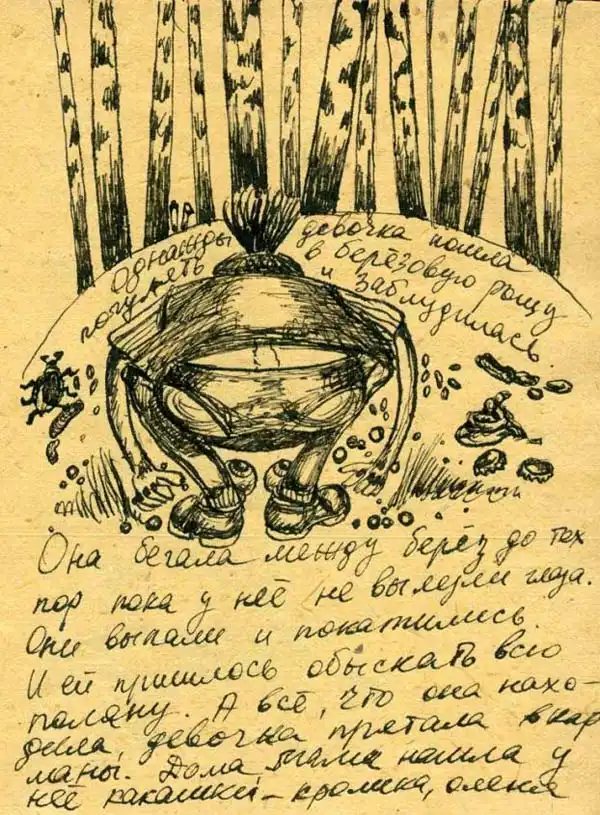 Однажды девочка пошла
погулять в берёзовую рощу
и заблудилась.
Она бегала между берёз до тех
пор пока у неё не вылезли глаза.
Они выпали и покатились.
И ей пришлось обыскать всю
поляну. А всё, что она нахо-
дила, девочка прятала в кар
маны. Дома, мама нашла у
неё какашки – кролика, оленя